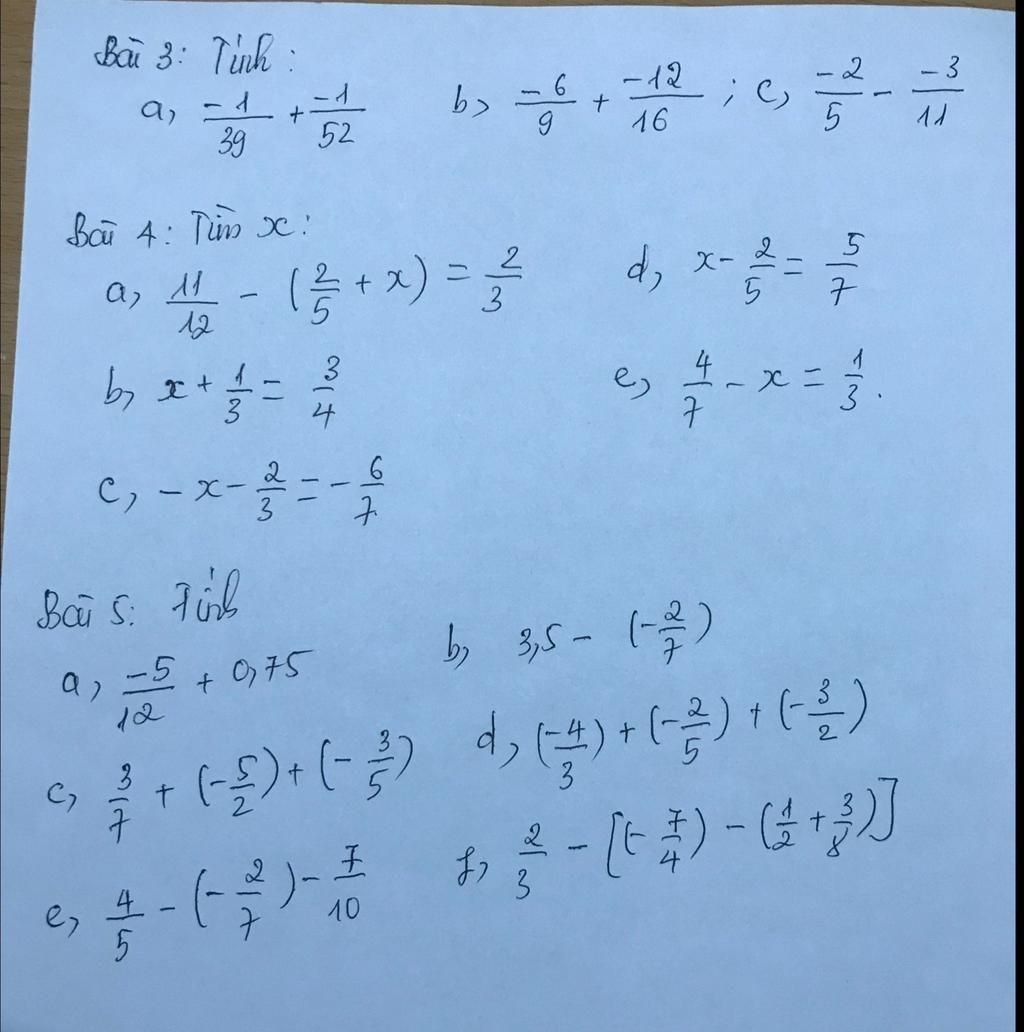 Bài 3: Tính:
a, -1/39 + -1/52 b, -6/9 + -12/16 ; c, -2/5 - -3/11
Bài 4: Tìm x:
a, 11/12 - (2/5 + x) = 2/3 d, x - 2/5 = 5/7
b, x + 1/3 = 3/4 e, 4/7 - x = 1/3.
c, -x - 2/3 = -6/7
Bài 5: Tính
a, -5/12 + 0,75 b, 3,5 - (-2/7)
c, 3/7 + (-5/2) + (-3/5) d, (-4/3) + (-2/5) + (-3/2)
e, 4/5 - (-2/7) - 7/10 f, 2/3 - [(-7/4) - (1/2 + 3/8)]